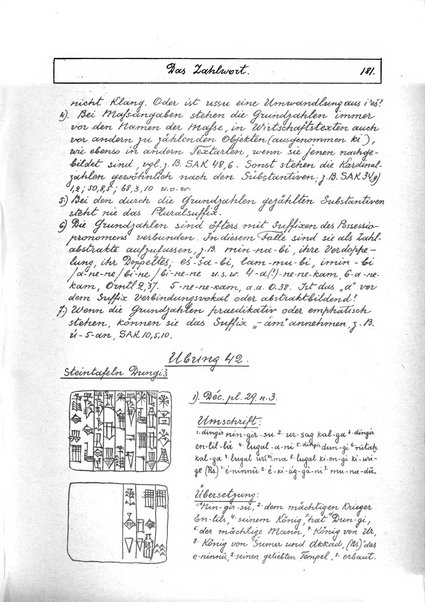 Das Zahlwort. 181.
nicht Klang. Oder ist ussu eine Umwandlung aus i+eš?
4). Bei Maßangaben stehen die Grundzahlen immer
vor den Namen der Maße, in Wirtschaftstexten auch
vor andern zu zählenden Objekten (ausgenommen ki),
wie ebenso in andern Textarten, wenn sie jenen nachge-
bildet sind, vgl. z.B. SAK 48,6. Sonst stehen die Kardinal-
zahlen gewöhnlich nach den Substantiven. z.B. SAK
1,2; 50,8,2; 68,3,10 u.o.w.
5). Bei den durch die Grundzahlen gezählten Substantiven
steht nie das Pluralsuffix.
6) Die Grundzahlen sind öfters mit Suffixen des Possessiv-
pronomens verbunden. In diesem Falle sind sie als Zahl-
abstrakte aufzufassen, z.B. min-na-bi, ihre Verdoppe-
lung, ihr Doppeltes; eš-ša-bi, lam-mu-bi, imin-bi
/a-ne-ne/bi-ne/bi-ne-ne u.s.w. 4-a(!)-ne-ne-kam, 6-a-ne-
kam, Orntl 2,37. 5-ne-ne-kam, a.a.O.38. Ist das „a" vor
dem Suffix Verbindungsvokal oder abstraktbildend?
7). Wenn die Grundzahlen praedikativ oder emphatisch
stehen, können sie das Suffix „-àm" annehmen, z.B.
ù-5-an, SAK 10,5,10.
Übung 42.
Steintafeln Dungiš
1). Déc. pl. 29, n. 3.
Umschrift:
1. dingir nin-gir-su 2. ur-sag kal-ga 3. dingir
en-lil-lá 4. lugal-a-ni 5. dingir dun-gi 6. nitaḫ
kal-ga 7. lugal uri ki ma 8. lugal ki-en-gi ki-uri-
ge (Rs) 1. é-ninnû 2. é-ki-ág-gá-ni 3. mu-na-dū.
Übersetzung:
1. Nin-gir-su, 2. dem mächtigen Krieger
En-lils, 4. seinem König, hat Dun-gi,
6. der mächtige Mann, 7. König von Ur,
8. König von Sumer und Akkad, (Rs) 1. das
é-ninnû, 2. seinen geliebten Tempel, 3. erbaut.